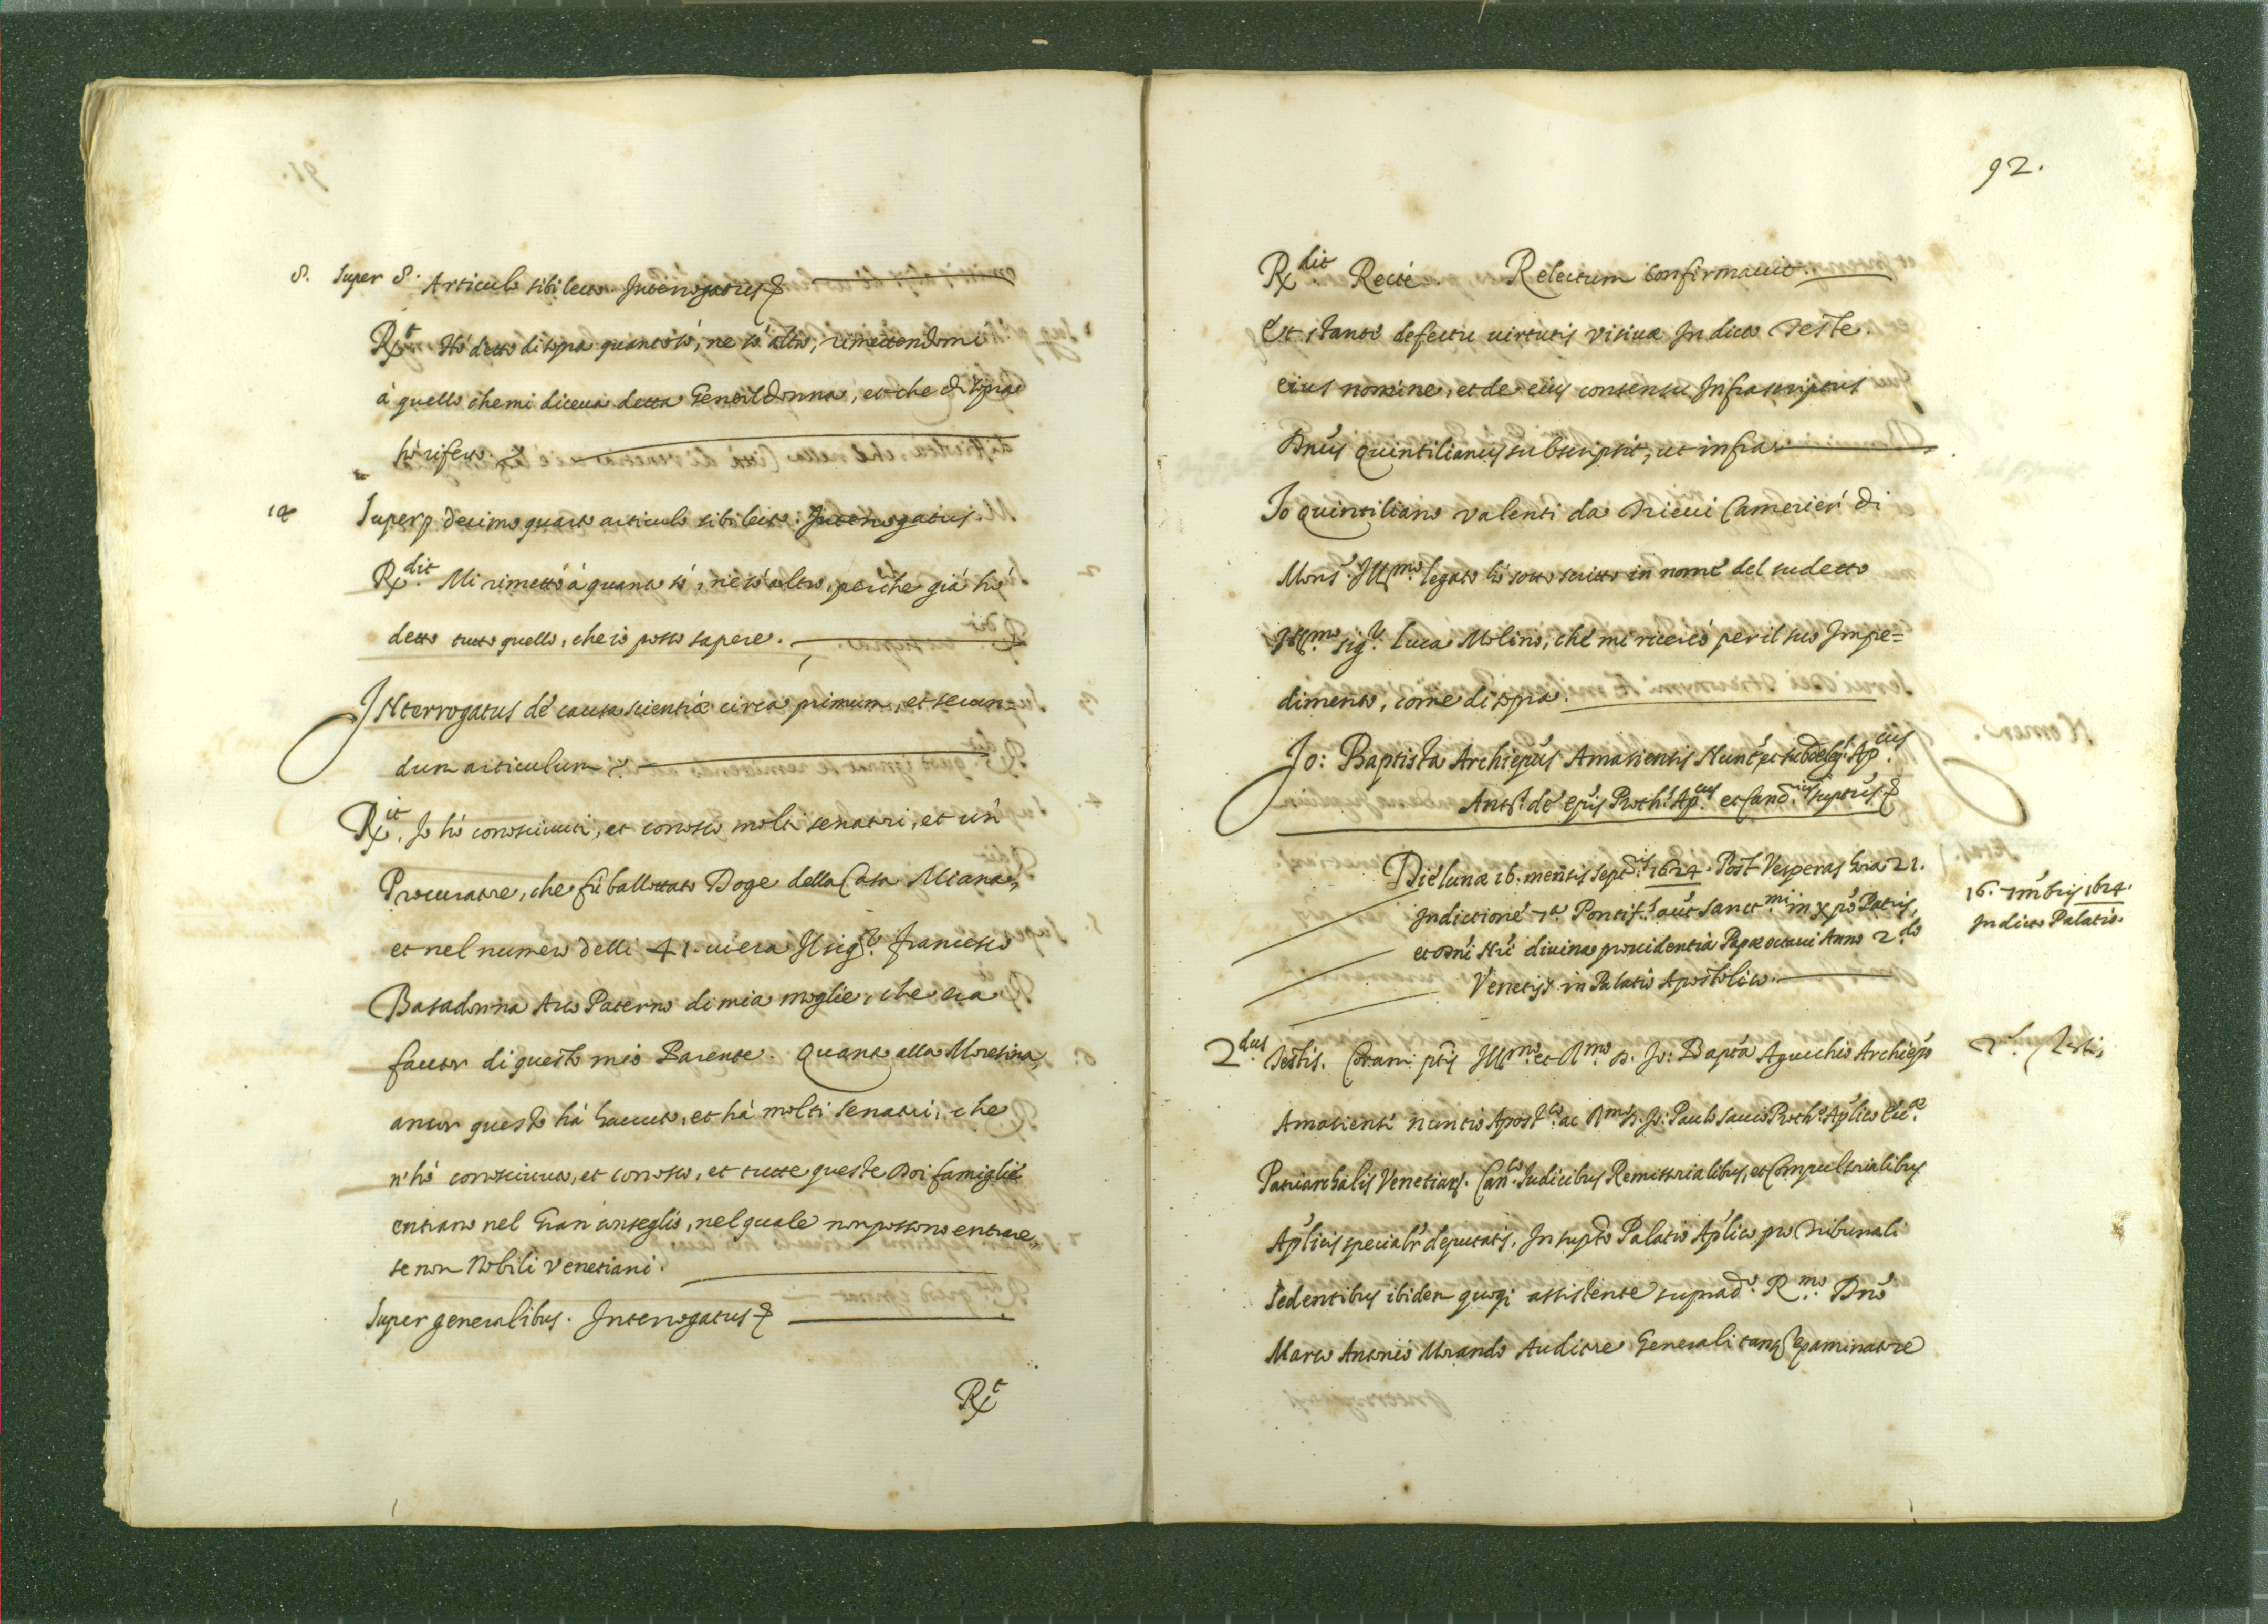 8. Super 8. Articulo sibi lecto Interrogatus &
Rt Hò detto di sopra quanto sò, ne sò altro, rimettendomi
à quello che mi diceua detta Gentildonna, et che di sopra
hò riferto. &
14 Super decimo quarto articulo sibi lecto. Interrogatus.
Rdit Mi rimetto à quanto sò, ne sò altro, perche già hò
detto tutto quello, che io posso sapere.
INterrogatus de causa scientiæ circa primum, et secun=
dum articulum &
Rit. Io hò conosciuti, et conosco molti senatori, et un
Procuratore, che fù ballottato Doge della Casa Miana,
et nel numero delli 41. ui era Il sigr. francesco
Basadonna Auo Paterno di mia moglie, che era
fautor di questo mio Parente. Quanto alla Moresina,
ancor questa hà hauuto, et hà molti senatori, che
n'hò conosciuto, et conosco, et tutte queste Doi famiglie
entrano nel Gran conseglio, nel quale non possono entrare,
se non Nobili Venetiani.
Super generalibus. Interrogatus &
Rt
92.
Rdit Recte. Relectum confirmauit.
Et stante defectu uirtutis visiuæ In dicto Teste.
eius nomine, et de eius consensu Infrascriptus
Dnus Quintilianus subscripsit, ut infra
Io Quintiliano Valenti da Trieui Camerier di
Mons. Illmo. legato hò sotto scritto in nome del sudetto
Illmo. sigr. Luca Molino, che mi ricercò per il suo Impe=
dimento, come di sopra.
Jo: Baptista Archiepus Amasiensis Nunts et subdelegs. Apcus.
Ants. de epis Proths. Apcus et Cancus suptus &
Die lunæ 16. mensis septris 1624. Post Vesperas hora 21.
Indictione 7a Pontifs. aut Sanctmi in xpo Patris,
et Dni Nri diuina prouidentia Papæ octaui Anno 2do
Venetijs in Palatio Apostolico.
16. 7mbris 1624.
In dicto Palatio.
2dus Testis. Coram ptis Illmo. et Rmo. D. Jo: Bapta Aguchio Archiepo
2s. Testis
Amasiensi nuntio Apostco. ac Rmo D. Jo: Paulo sauio Protho. Aplico Ecæ.
Patriarchalis Venetiar. Canco. Iudicibus Remissorialibus, et Compulsorialibus
Aplicis specialr deputatis, In supto Palatio Aplico, pro Tribunali
sedentibus ibidem quoqz assistente suprado. Rmo. Dno
Marco Antonio Morando Auditore Generali tanq examinatore